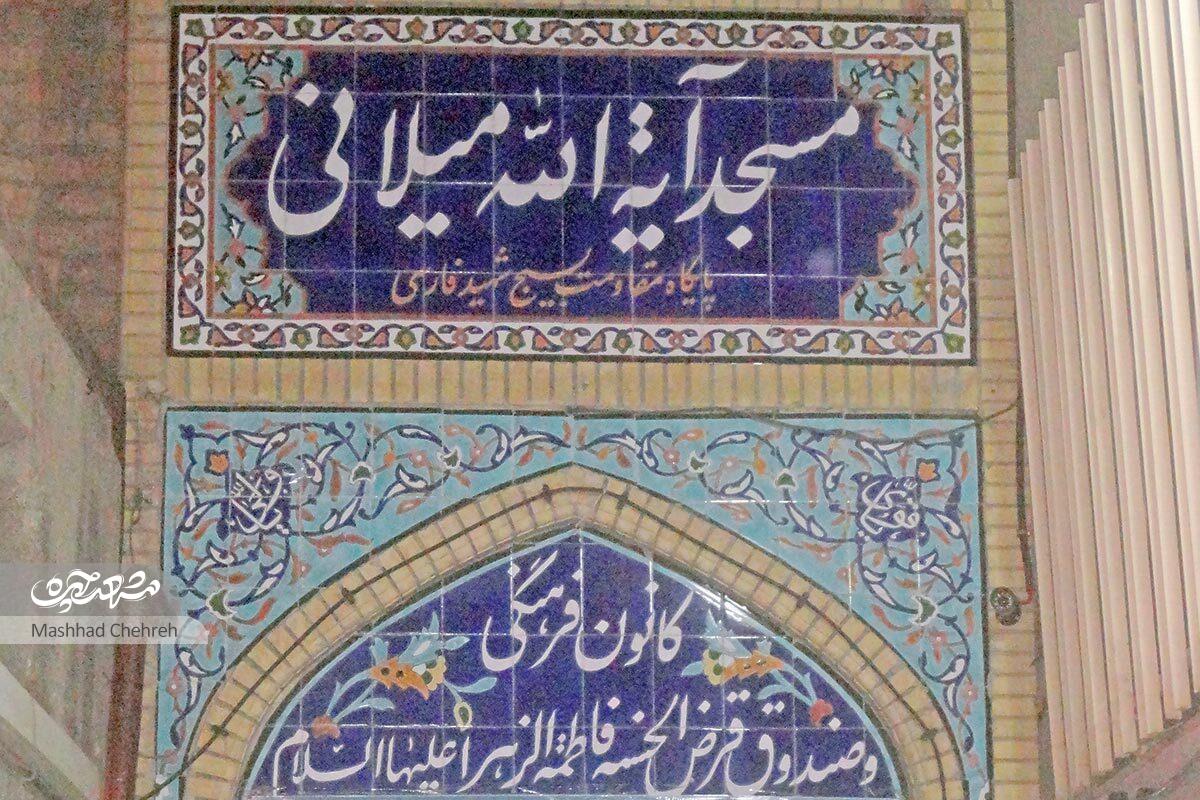 مسجد آیة الله میلانی
پایگاه مقاومت بسیج شهید فارسی
کانون فرهنگی
و صندوق قرض الحسنه فاطمة الزهرا علیها السلام
مشهد چهره
Mashhad Chehreh